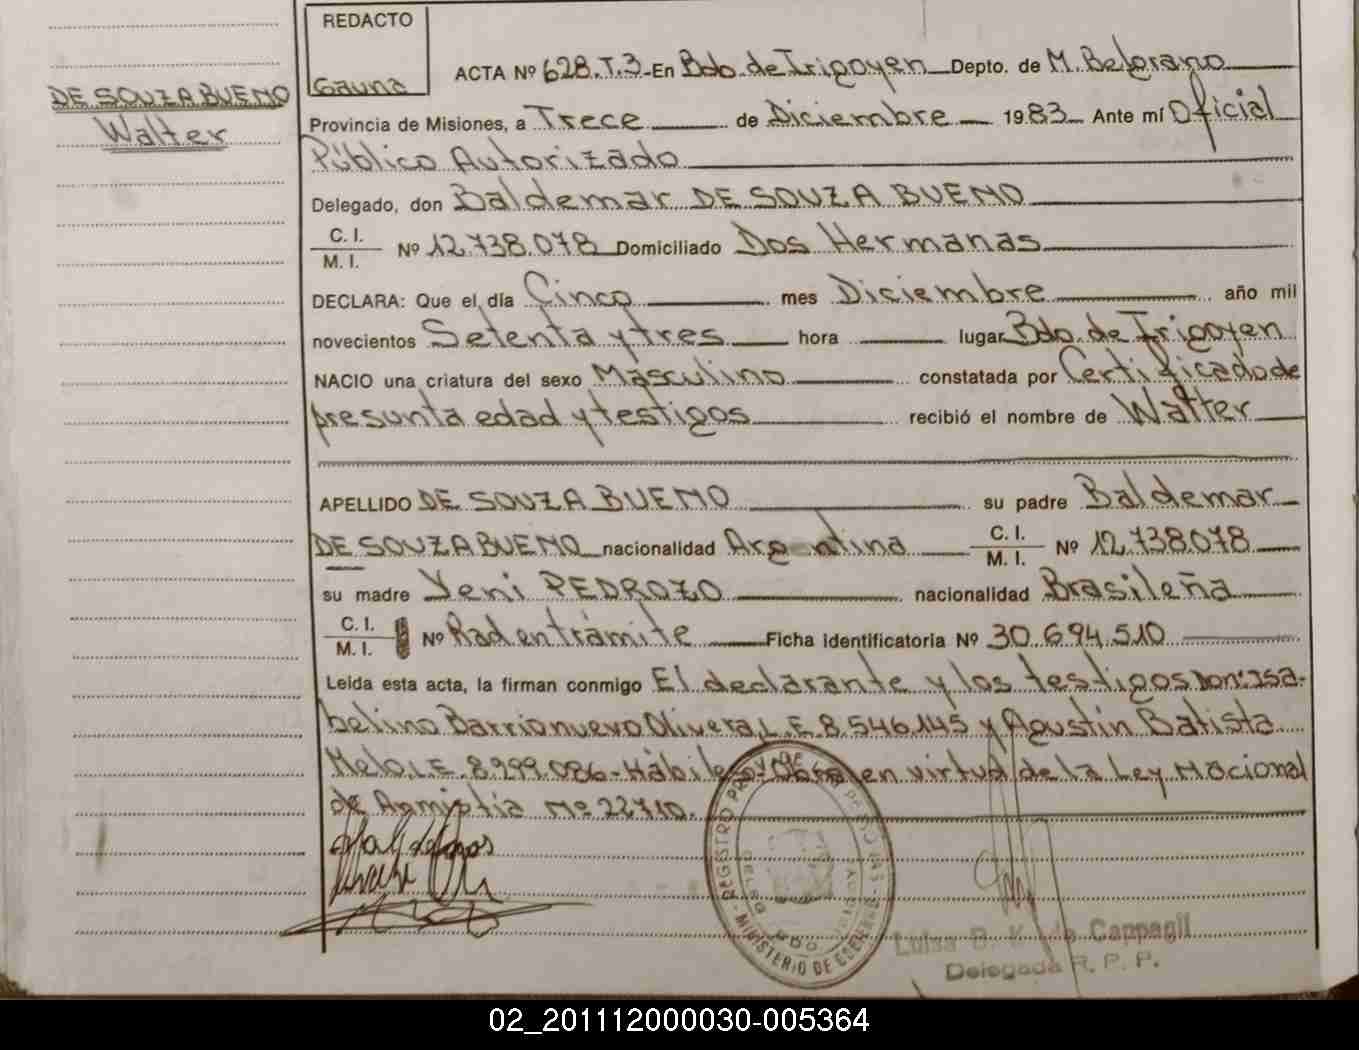 REDACTO
Gauna
DE SOUZA BUENO
Walter
ACTA Nº 628.T.3 En Bdo. de Irigoyen Depto. de M. Belgrano
Provincia de Misiones, a Trece de Diciembre 1983 Ante mí Oficial
Público Autorizado
Delegado, don Baldemar DE SOUZA BUENO
C. I.
M. I. Nº 12.738.078 Domiciliado Dos Hermanas
DECLARA: Que el día Cinco mes Diciembre año mil
novecientos Setenta y tres hora lugar Bdo. de Irigoyen
NACIO una criatura del sexo Masculino constatada por Certificado de
presunta edad y testigos recibió el nombre de Walter
APELLIDO DE SOUZA BUENO su padre Baldemar
DE SOUZA BUENO nacionalidad Argentina C. I. M. I. Nº 12.738.078
su madre Yeni PEDROZO nacionalidad Brasileña
C. I.
M. I. Nº Rad en trámite Ficha identificatoria Nº 30.694.510
Leída esta acta, la firman conmigo El declarante y los testigos Don: Isa-
belino Barrionuevo Olivera, L.E. 8.546.145 y Agustín Batista
Melo L.E. 8.299.086 - Hábiles - en virtud de la Ley Nacional
de Agmistia Nº 22710.
REGISTRO PROV. DE LAS PERSONAS
MINISTERIO DE GOBIERNO
Luisa B. K. de Cappagli
Delegada R. P. P.
02_201112000030-005364